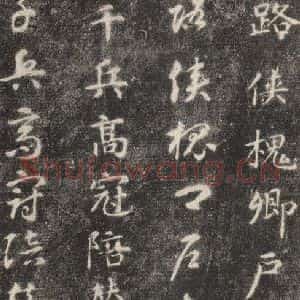 路俠槐卿戶
路俠槐卿戶
千兵高冠陪
千兵高冠陪
Shufawang.Cn